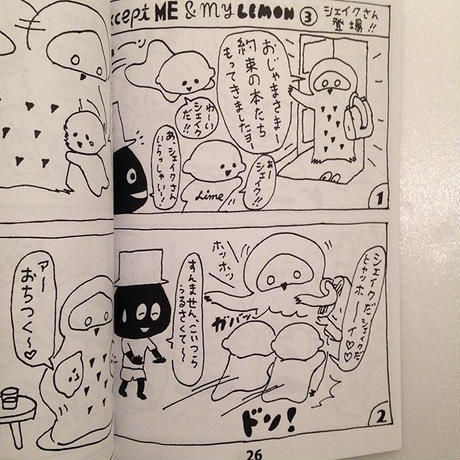 xcept ME & my LEMON ③ シェイクさん
登場!!
おじゃまさまー
約束の本たち
もってきましたヨ
わーい
シェイク
だ!!
あ、シェイクさん
いらっしゃい!
シェイク!!
Lime
1
シェイクだ シェイクだ
ヒャッホーーイ♡
ホッホッ
ガバッ
すんません、こいつら
うるさくて〜
ドン!
2
アー
おちつく〜♡
26